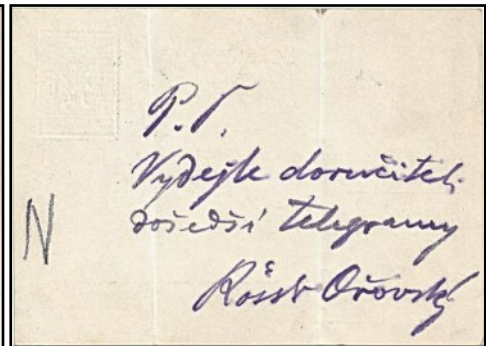 P.T.
Vydejte doručiteli
došedší telegramy
Rössler Ořovský
N